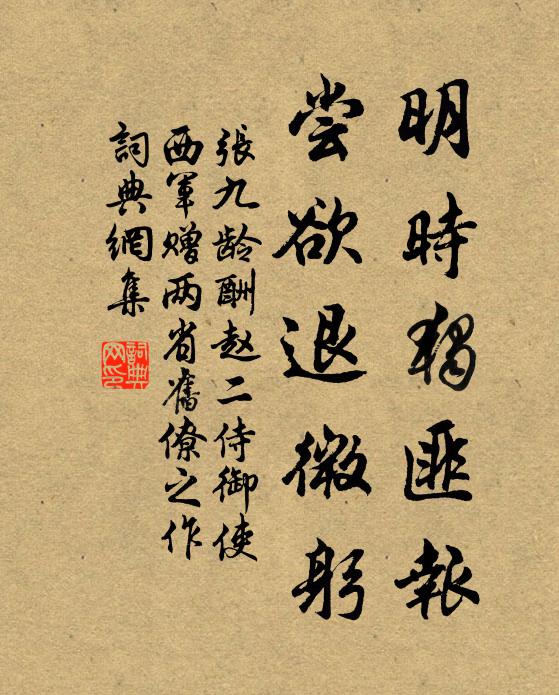 明時獨匪報
尝欲退微躬
張九龄酬赵二侍御使
西軍赠两省舊僚之作
詞典網集
詞典網印